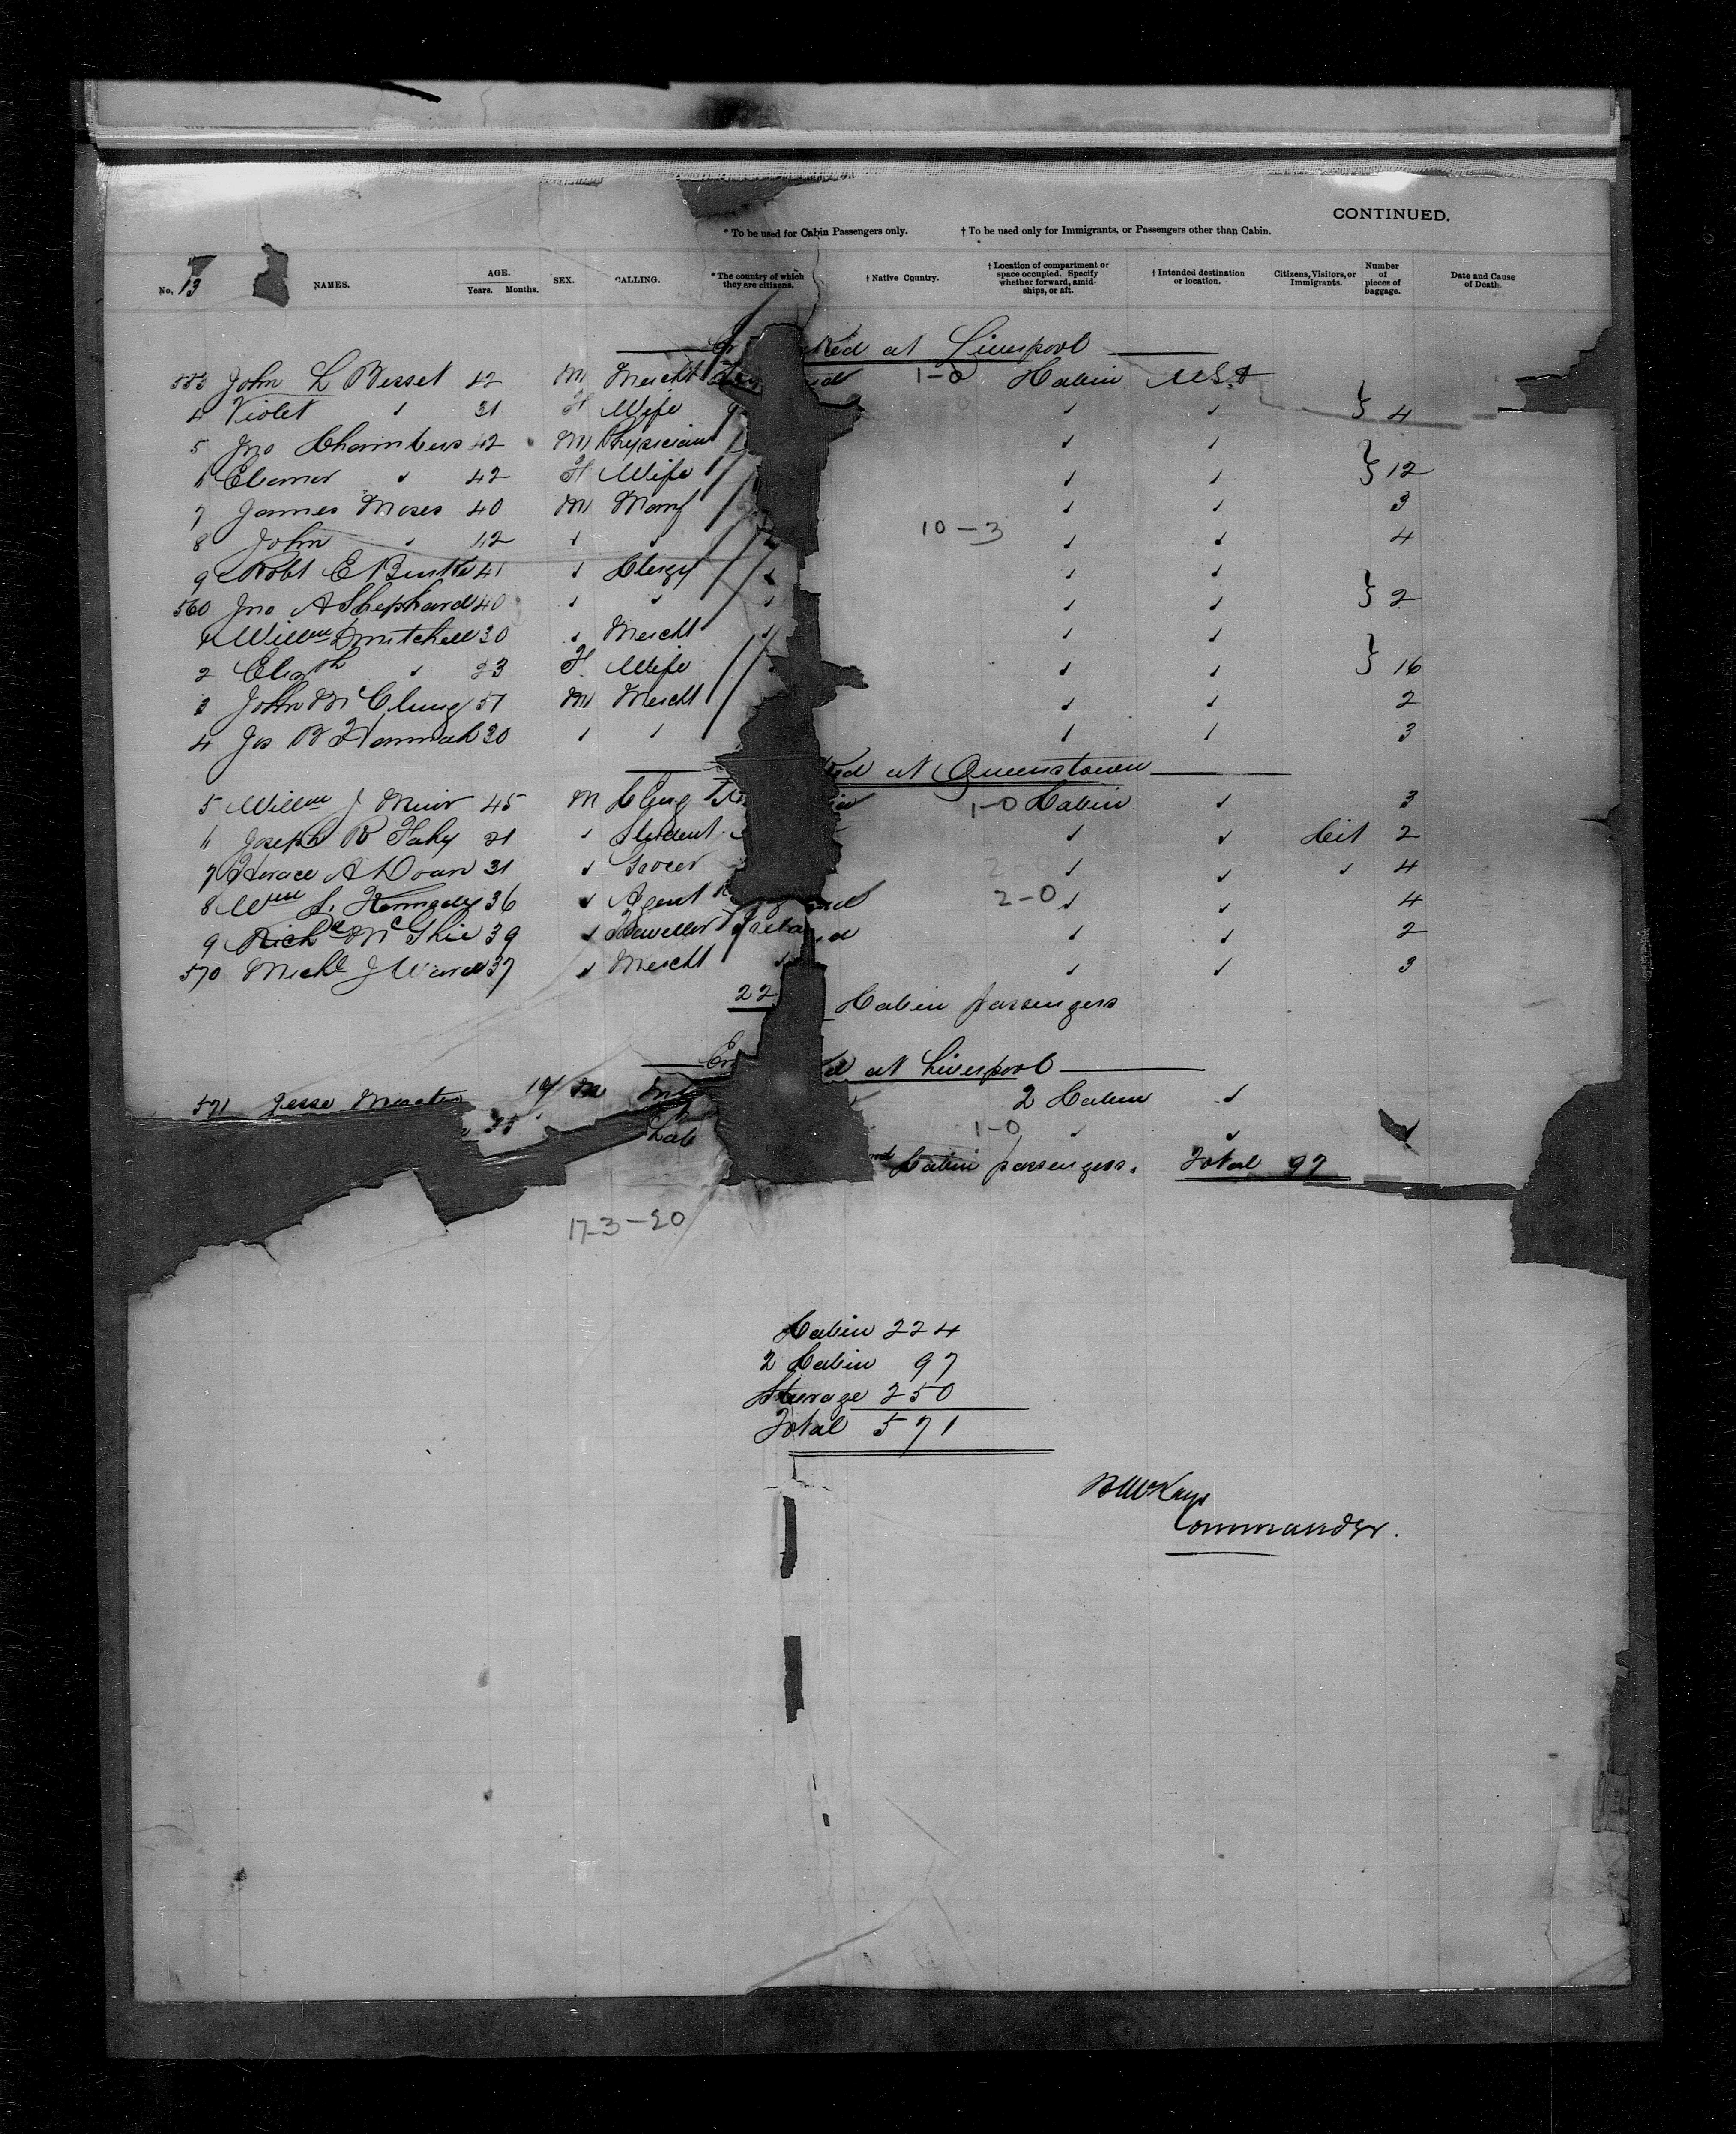 CONTINUED.
* To be used for Cabin Passengers only. † To be used only for Immigrants, or Passengers other than Cabin.
No. 13 NAMES. AGE. Years. Months. SEX. CALLING. * The country of which they are citizens. † Native Country. † Location of compartment or space occupied. Specify whether forward, amidships, or aft. † Intended destination or location. Citizens, Visitors, or Immigrants. Number of pieces of baggage. Date and Cause of Death.
ked at Liverpool
553 John L Besset 42 M Mercht 1-0 Cabin USA
4 Violet " 31 F Wife " " } 4
5 Jno Chambers 42 M Physician " "
6 Eleanor " 42 F Wife " " } 12
7 James Moses 40 M Manf " " 3
8 John " 12 " " 10-3 " " 4
9 Robt E Burke 41 " Clergy " " "
560 Jno A Shephard 40 " " " " " } 2
1 Willm D Mitchell 30 " Mercht " " "
2 Elizth " 23 F Wife " " } 16
3 John McClung 51 M Mercht " " 2
4 Jos B Hannah 30 " " " " 3
ed at Queenstown
5 Willm J Muir 45 M Clerg 1-0 Cabin " 3
6 Joseph R Fahy 21 " Student " " Cit 2
7 Horace A Doan 31 " Grocer 2 " " " 4
8 Wm S. Kennedy 36 " Agent nd 2-0 " " 4
9 Richd McGhie 39 " Traveller Irela d " " 2
570 Michl J Ward 37 " Mercht " " " 3
22 Cabin passengers
Em d at Liverpool
571 Jesse 19 M 2 Cabin "
35 Lab 1-0 " "
nd Cabin passengers. Total 97
17-3-20
Cabin 224
2 Cabin 97
Steerage 250
Total 571
McKay
Commander.